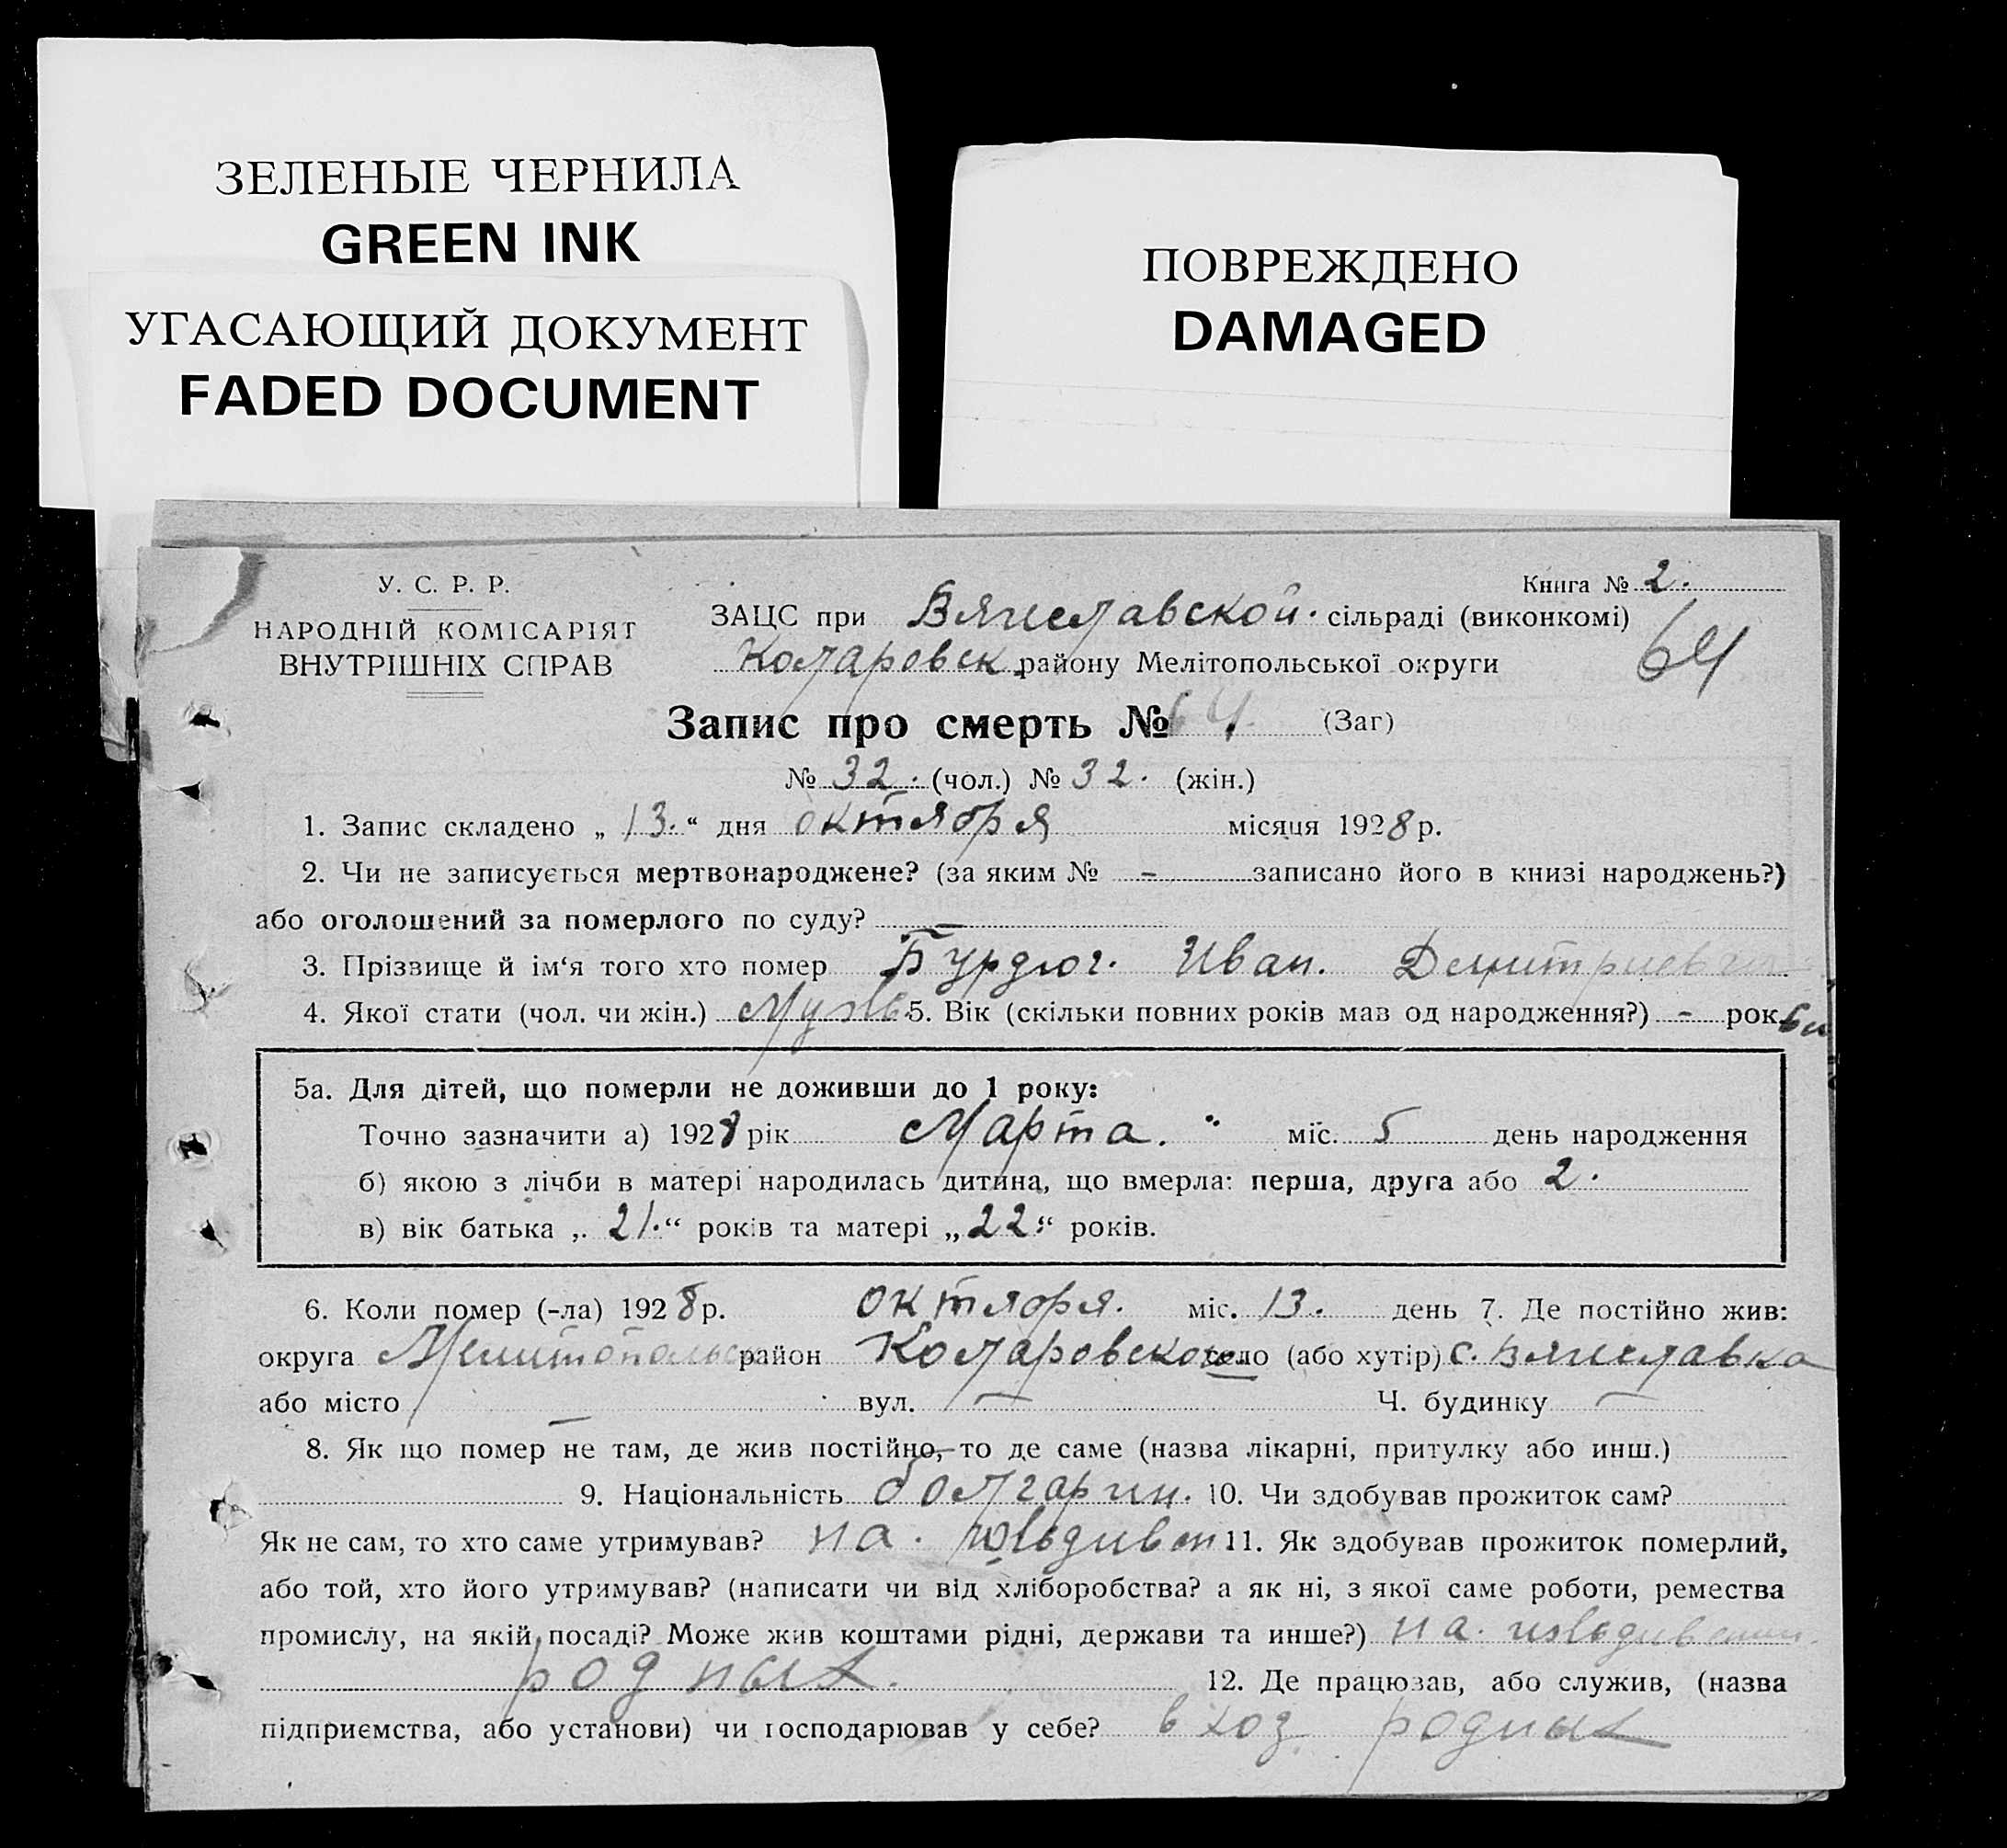 ЗЕЛЕНЫЕ ЧЕРНИЛА
GREEN INK
УГАСАЮЩИЙ ДОКУМЕНТ
FADED DOCUMENT
ПОВРЕЖДЕНО
DAMAGED
Книга № 2.
У. С. Р. Р.
НАРОДНІЙ КОМІСАРІЯТ
ВНУТРІШНІХ СПРАВ
ЗАЦС при Вячеславской. сільраді (виконкомі)
Коларовск. району Мелітопольської округи
64
Запис про смерть № 64. (Заг)
№ 32. (чол.) № 32. (жін.)
1. Запис складено „ 13. “ дня октября місяця 1928 р.
2. Чи не записується мертвонароджене? (за яким № - записано його в книзі народжень?)
або оголошений за померлого по суду? —
3. Прізвище й ім‘я того хто помер Бурдюг. Иван. Дмитриевич
4. Якої статі (чол. чи жін.) Мужс 5. Вік (скільки повних років мав од народження?) - рок 6 м
5а. Для дітей, що померли не доживши до 1 року:
Точно зазначити а) 1928 рік Марта. міс. 5 день народження
б) якою з лічби в матері народилась дитина, що вмерла: перша, друга або 2.
в) вік батька „ 21. “ років та матері „ 22. “ років.
6. Коли помер (-ла) 1928 р. октября. міс. 13. день 7. Де постійно жив:
округа Мелитопольс район Коларовского село (або хутір) с. Вячеславка
або місто — вул. — Ч. будинку —
8. Як що помер не там, де жив постійно, то де саме (назва лікарні, притулку або инш.)
9. Національність болгарин. 10. Чи здобував прожиток сам?
Як не сам, то хто саме утримував? на. 11. Як здобував прожиток померлий,
або той, хто його утримував? (написати чи від хліборобства? а як ні, з якої саме роботи, ремества
промислу, на якій посаді? Може жив коштами рідні, держави та инше?) на.
родных. 12. Де працював, або служив, (назва
підприємства, або установи) чи господарював у себе? в хоз. родных